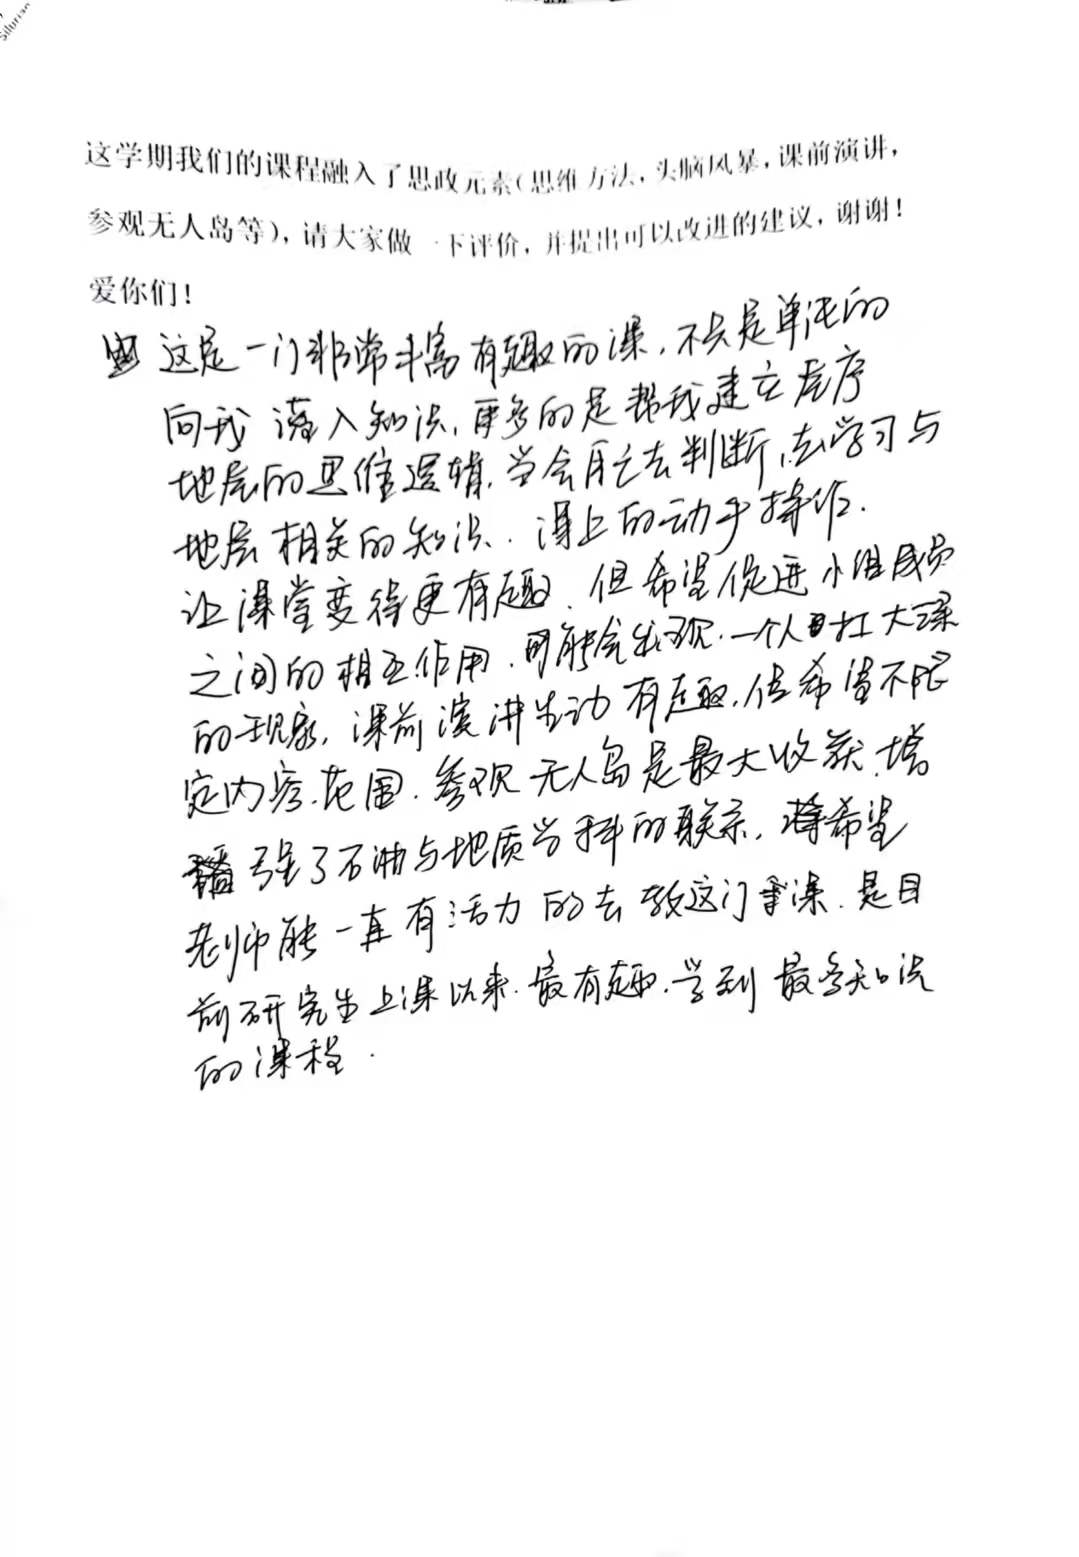 Silurian
这学期我们的课程融入了思政元素(思维方法,头脑风暴,课前演讲,
参观无人岛等),请大家做一下评价,并提出可以改进的建议,谢谢!
爱你们!
这是一门非常丰富有趣的课,不只是单纯的
向我灌入知识,更多的是帮我建立层序
地层的思维逻辑,学会自己去判断,去学习与
地层相关的知识.课上的动手操作.
让课堂变得更有趣.但希望促进小组成员
之间的相互作用.可能会出现.一个人扛大梁
的现象,课前演讲生动有趣,但希望不限
定内容.范围.参观无人岛是最大收获.增
强了石油与地质学科的联系,希望
老师能一直有活力的去教这门课.是目
前研究生上课以来.最有趣.学到最多知识
的课程.